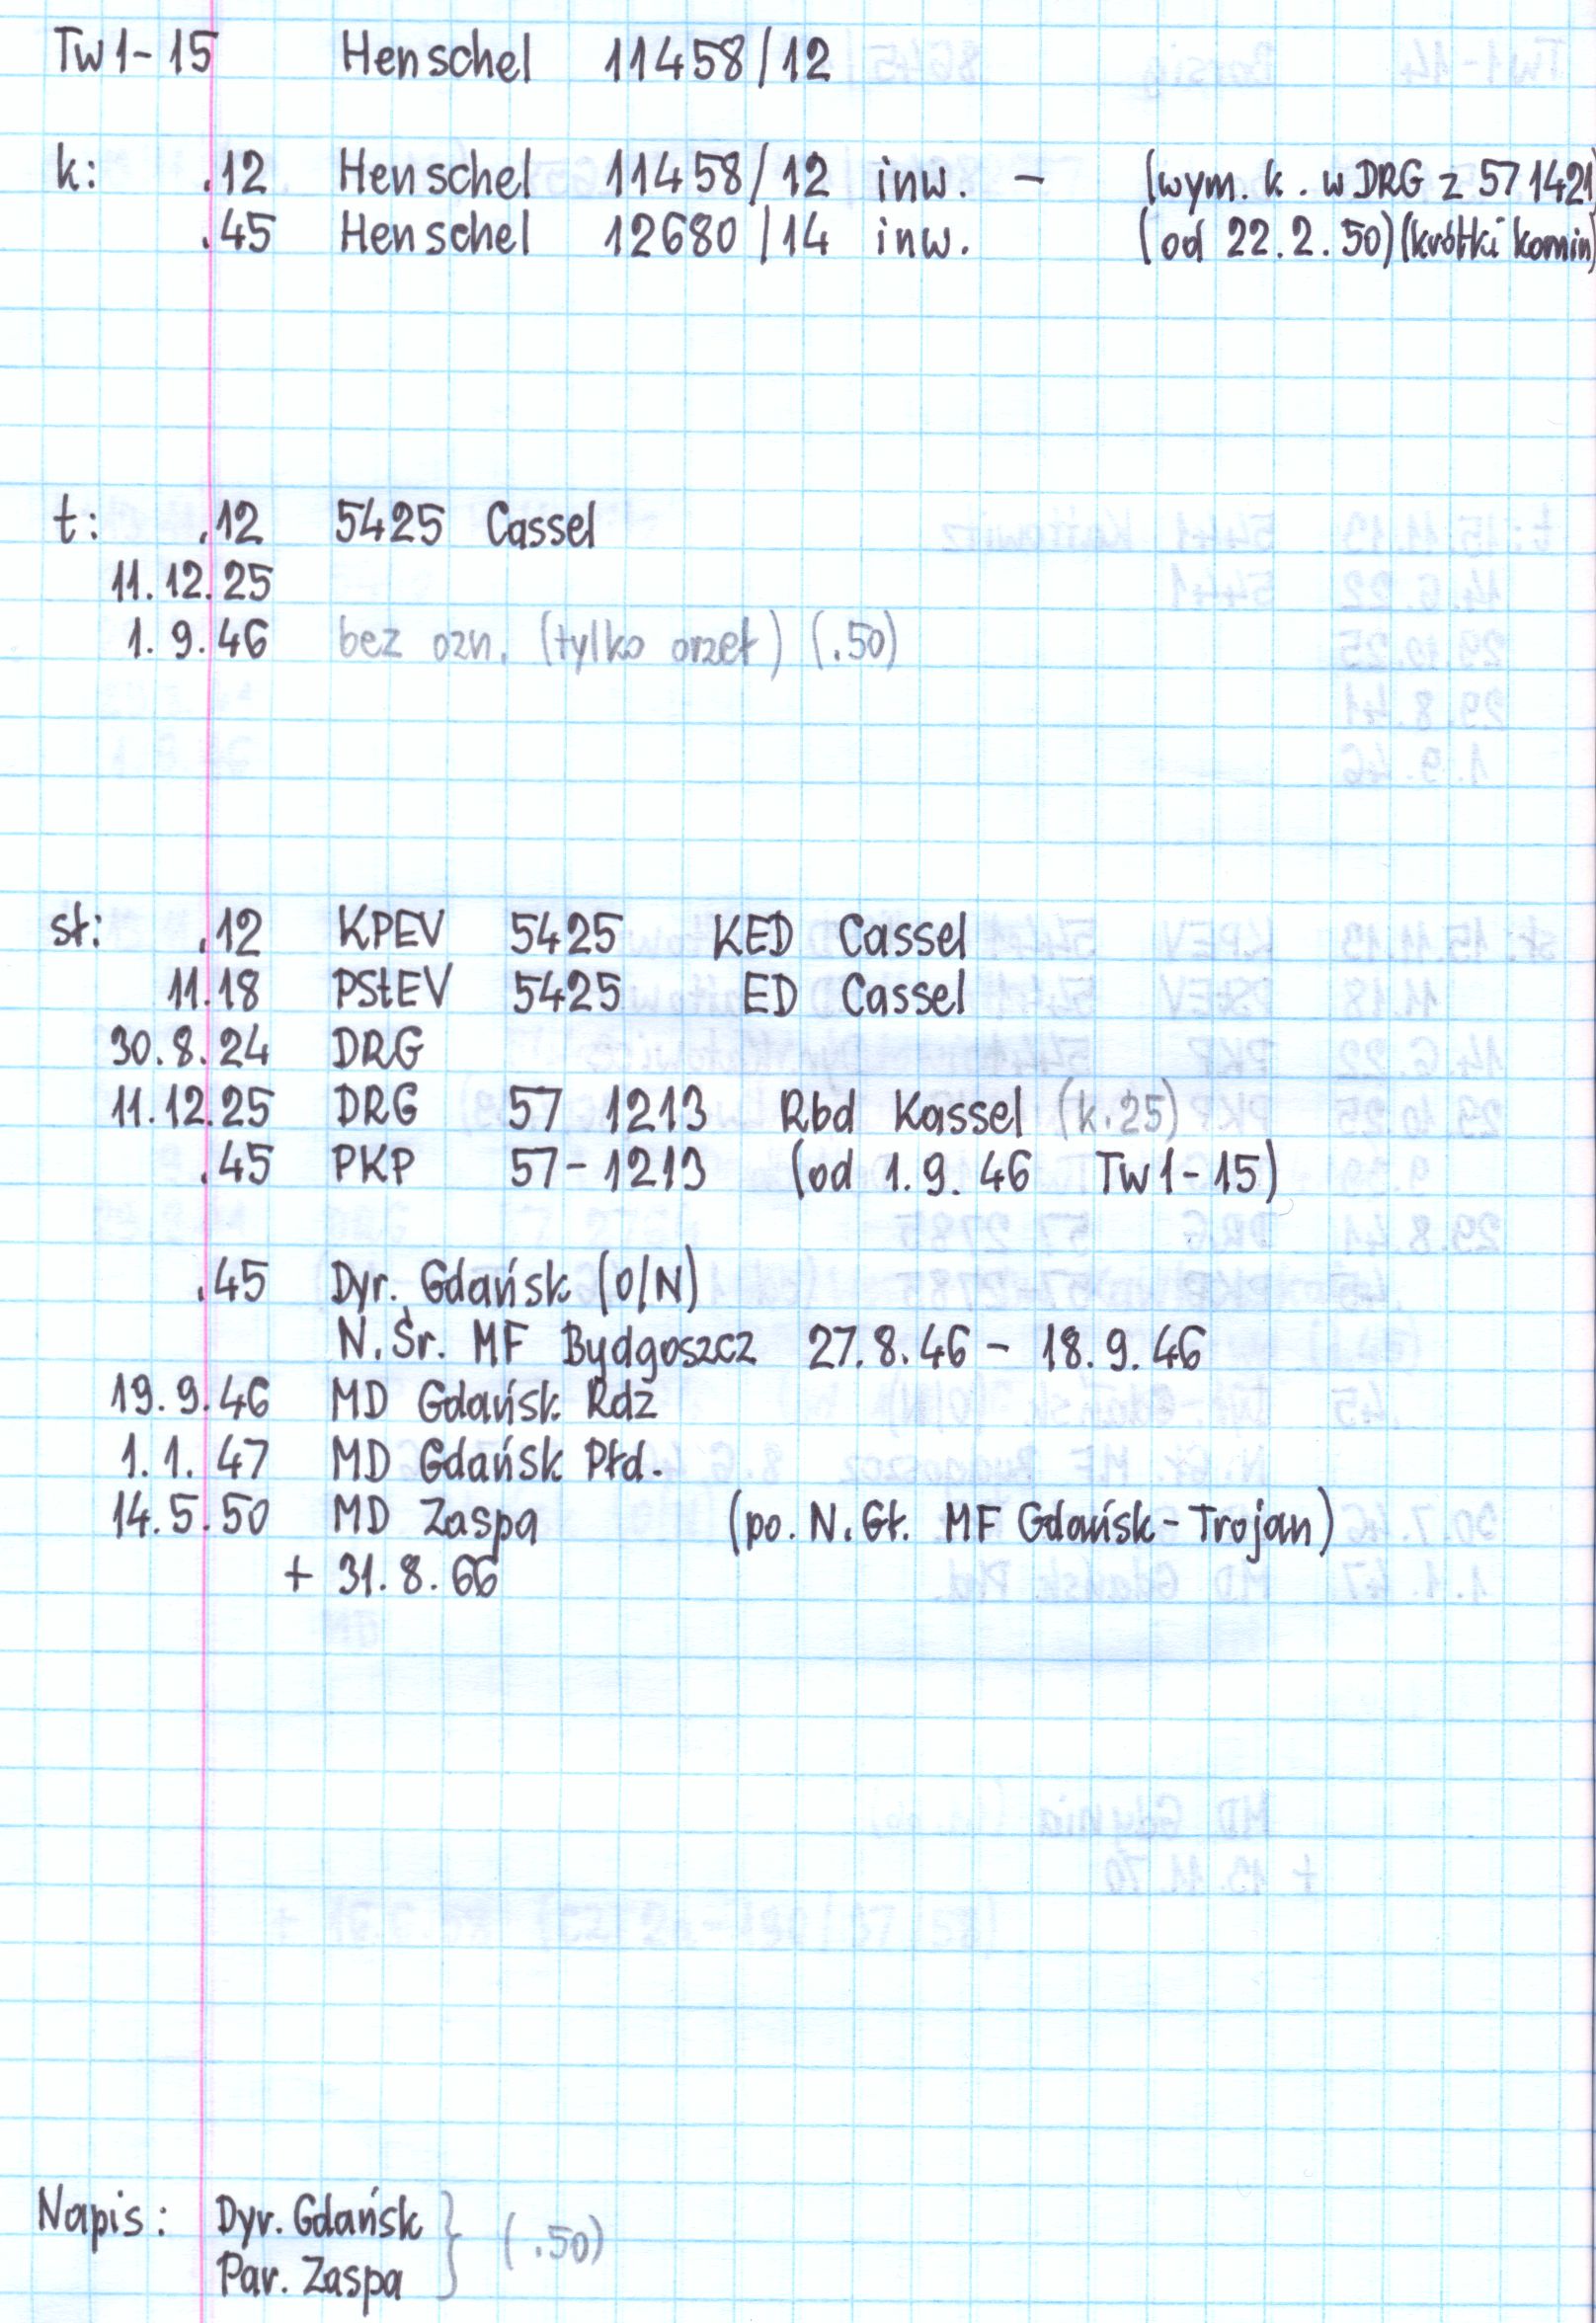 Tw1-15 Henschel 11458/12
k: .12 Henschel 11458/12 inw. - (wym. k. w DRG z 57 1421)
.45 Henschel 12680/14 inw. (od 22.2.50) (krótki komin)
t: .12 5425 Cassel
11.12.25
1.9.46 bez ozn. (tylko orzeł) (.50)
st: .12 KPEV 5425 KED Cassel
11.18 PStEV 5425 ED Cassel
30.8.24 DRG
11.12.25 DRG 57 1213 Rbd Kassel (k.25)
.45 PKP 57-1213 (od 1.9.46 Tw1-15)
.45 Dyr. Gdańsk (O/N)
N.Śr. MF Bydgoszcz 27.8.46 - 18.9.46
19.9.46 MD Gdańsk Rdz
1.1.47 MD Gdańsk Płd.
14.5.50 MD Zaspa (po. N.Gł. MF Gdańsk-Trojan)
+ 31.8.66
Napis: Dyr. Gdańsk } (.50)
Par. Zaspa